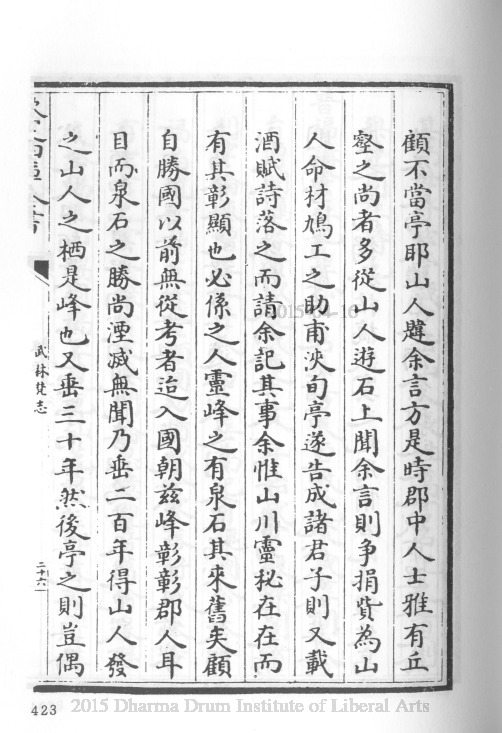 顧不當亭耶山人韙余言方是時郡中人士雅有丘
壑之尚者多從山人遊石上聞余言則争捐貲為山
人命材鳩工之助甫浹旬亭遂告成諸君子則又載
酒賦詩落之而請余記其事余惟山川靈秘在在而
有其彰顯也必係之人靈峰之有泉石其來舊矣顧
自勝國以前無從考者迨入國朝兹峰彰彰郡人耳
目而泉石之勝尚湮滅無聞乃垂二百年得山人發
之山人之栖是峰也又垂三十年然後亭之則豈偶
武林梵志
二十六
423
2015-04-16
2015 Dharma Drum Institute of Liberal Arts